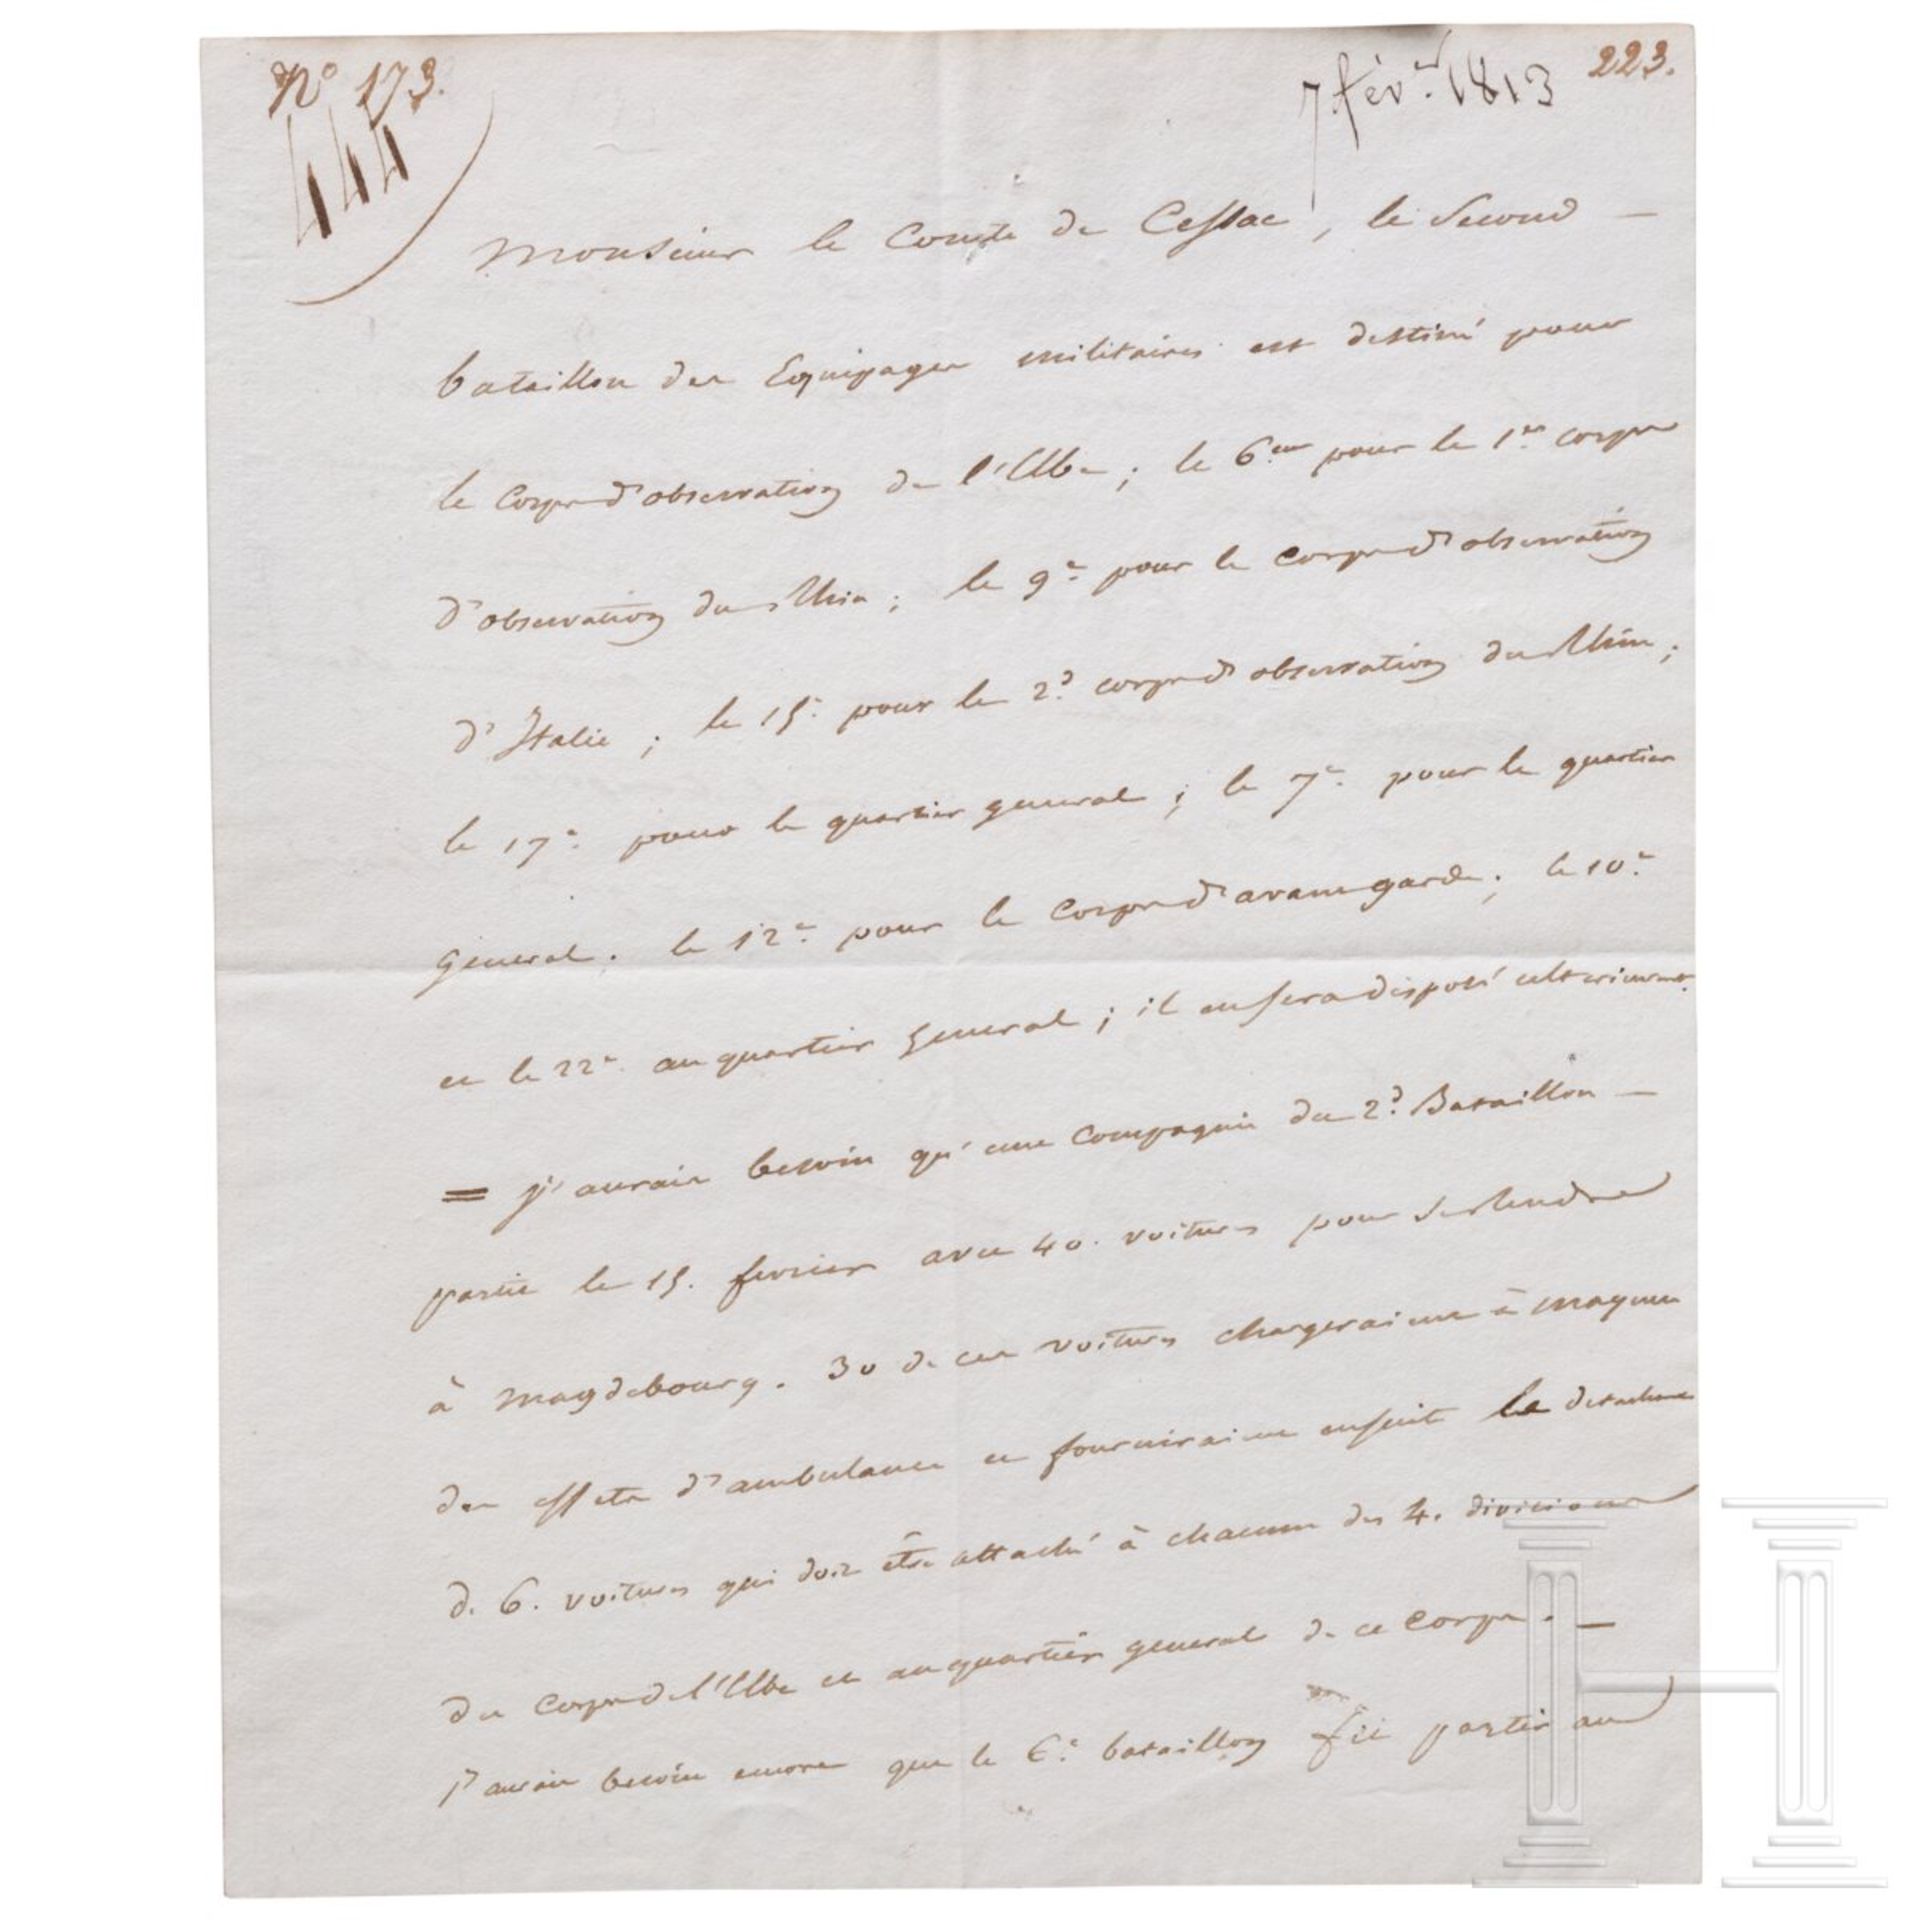 N° 173.
7 fév.er 1813
223.
444
Monsieur le Comte de Cessac, le Second —
bataillon des Equipages militaires est destiné pour
le Corps d'observation de l'Elbe; le 6.eme pour le 1er corps
d'observation du Rhin; le 9e pour le corps d'observation
d'Italie; le 15e pour le 2d corps d'observation du Rhin;
le 17e pour le quartier general; le 7e pour le quartier
General. le 12e pour le Corps d'avantgarde; le 10e
et le 22e au quartier General; il en sera disposé ulterieurement.
= j'aurais besoin qu'une Compagnie du 2d Bataillon —
partit le 15. fevrier avec 40. voitures pour se Rendre
à Magdebourg. 30 de ces voitures chargeraient à Mayence
des effets d'ambulance et fourniraient ensuite le detachement
de 6. voitures qui doit être attaché à chacune des 4. divisions
du Corps de l'Elbe et au quartier general de ce Corps. —
J'aurais besoin encore que le 6e bataillon fit partir au